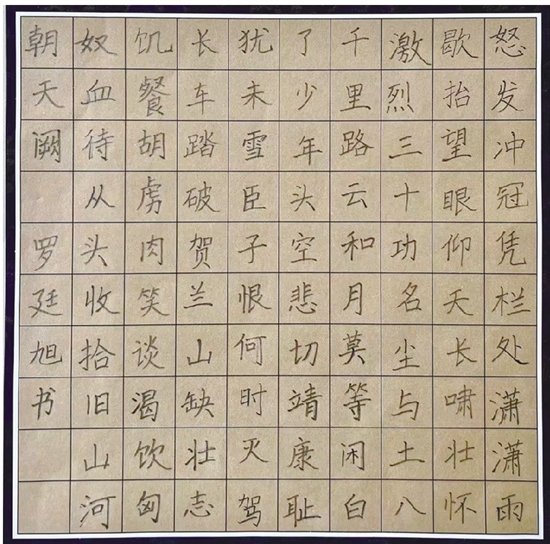 怒发冲冠凭栏处潇潇雨
歇抬望眼仰天长啸壮怀
激烈三十功名尘与土八
千里路云和月莫等闲白
了少年头空悲切靖康耻
犹未雪臣子恨何时灭驾
长车踏破贺兰山缺壮志
饥餐胡虏肉笑谈渴饮匈
奴血待从头收拾旧山河
朝天阙 罗廷旭书